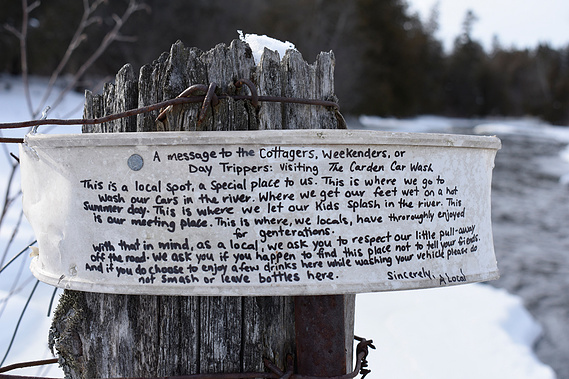 A message to the Cottagers, Weekenders, or
Day Trippers: Visiting The Carden Car Wash
This is a local spot, a Special place to us. This is where we go to
wash our Cars in the river. Where we get our feet wet on a hot
Summer day. This is where we let our Kids Splash in the river. This
is our meeting place. This is where, we locals, have throroughly enjoyed
for genterations.
with that in mind, as a local, we ask you to respect our little pull-away
off the road. We ask you if you happen to find this place not to tell your friends.
And if you do choose to enjoy a few drinks here while washing your vehicle please do
not smash or leave bottles here.
Sincerely, A Local